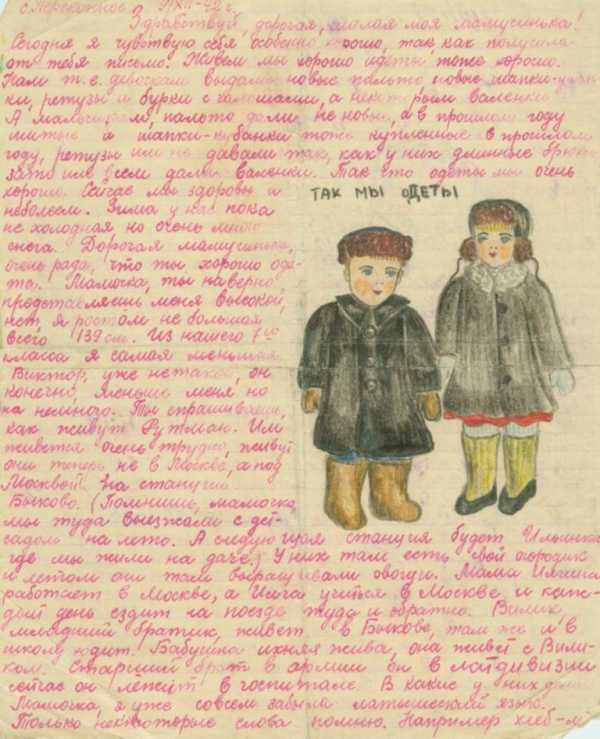 с. Перскопное 9/XII-42 г.
Здравствуй, дорогая, милая моя мамусинька!
Сегодня я чувствую себя особенно хорошо, так как получила
от тебя письмо. Живем мы хорошо одеты тоже хорошо.
Нам т.е. девочкам выдали новые пальто, новые шапки-ушан-
ки, ретузы и бурки с галошами, а некоторым валенки.
А мальчикам, пальто дали не новые, а в прошлом году
шитые и шапки-кубанки тоже купленные в прошлом
году, ретузы им не давали так, как у них длинные брюки
зато им всем дали валенки. Так что одеты мы очень
хорошо. Сейчас мы здоровы и
неболеем. Зима у нас пока
не холодная но очень много
снега. Дорогая мамусинька,
очень рада, что ты хорошо оде-
та. Мамочка, ты наверно,
представляешь меня высокой,
нет, я ростом не большая
всего 139 см. Из нашего 7го
класса я самая меньшая.
Виктор, уже не такой, он
конечно, меньше меня, но
на немного. Ты спрашиваешь,
как живут Рутман. Им
живется очень трудно, живут
они теперь не в Москве, а под
Москвой на станции
Быково. (Помнишь, мамочка,
мы туда выезжали с дет-
садом на лето. А следующая станция будет Ильинка
где мы жили на даче.) У них там есть свой огородик
и летом они там выращивали овощи. Мама
работает в Москве, а учится в Москве и каж-
дый день ездит на поезде туда и обратно. Вилик,
младший братик, живет в Быкове, там же и в
школу ходит. Бабушка ихняя жива, она живет с Вили-
ком. Старший брат в армии был в латдивизии
сейчас он лежит в госпитале. В каких у них
Мамочка, я уже совсем забыла латышский язык.
Только некоторые слова помню. Например хлеб-
ТАК МЫ ОДЕТЫ